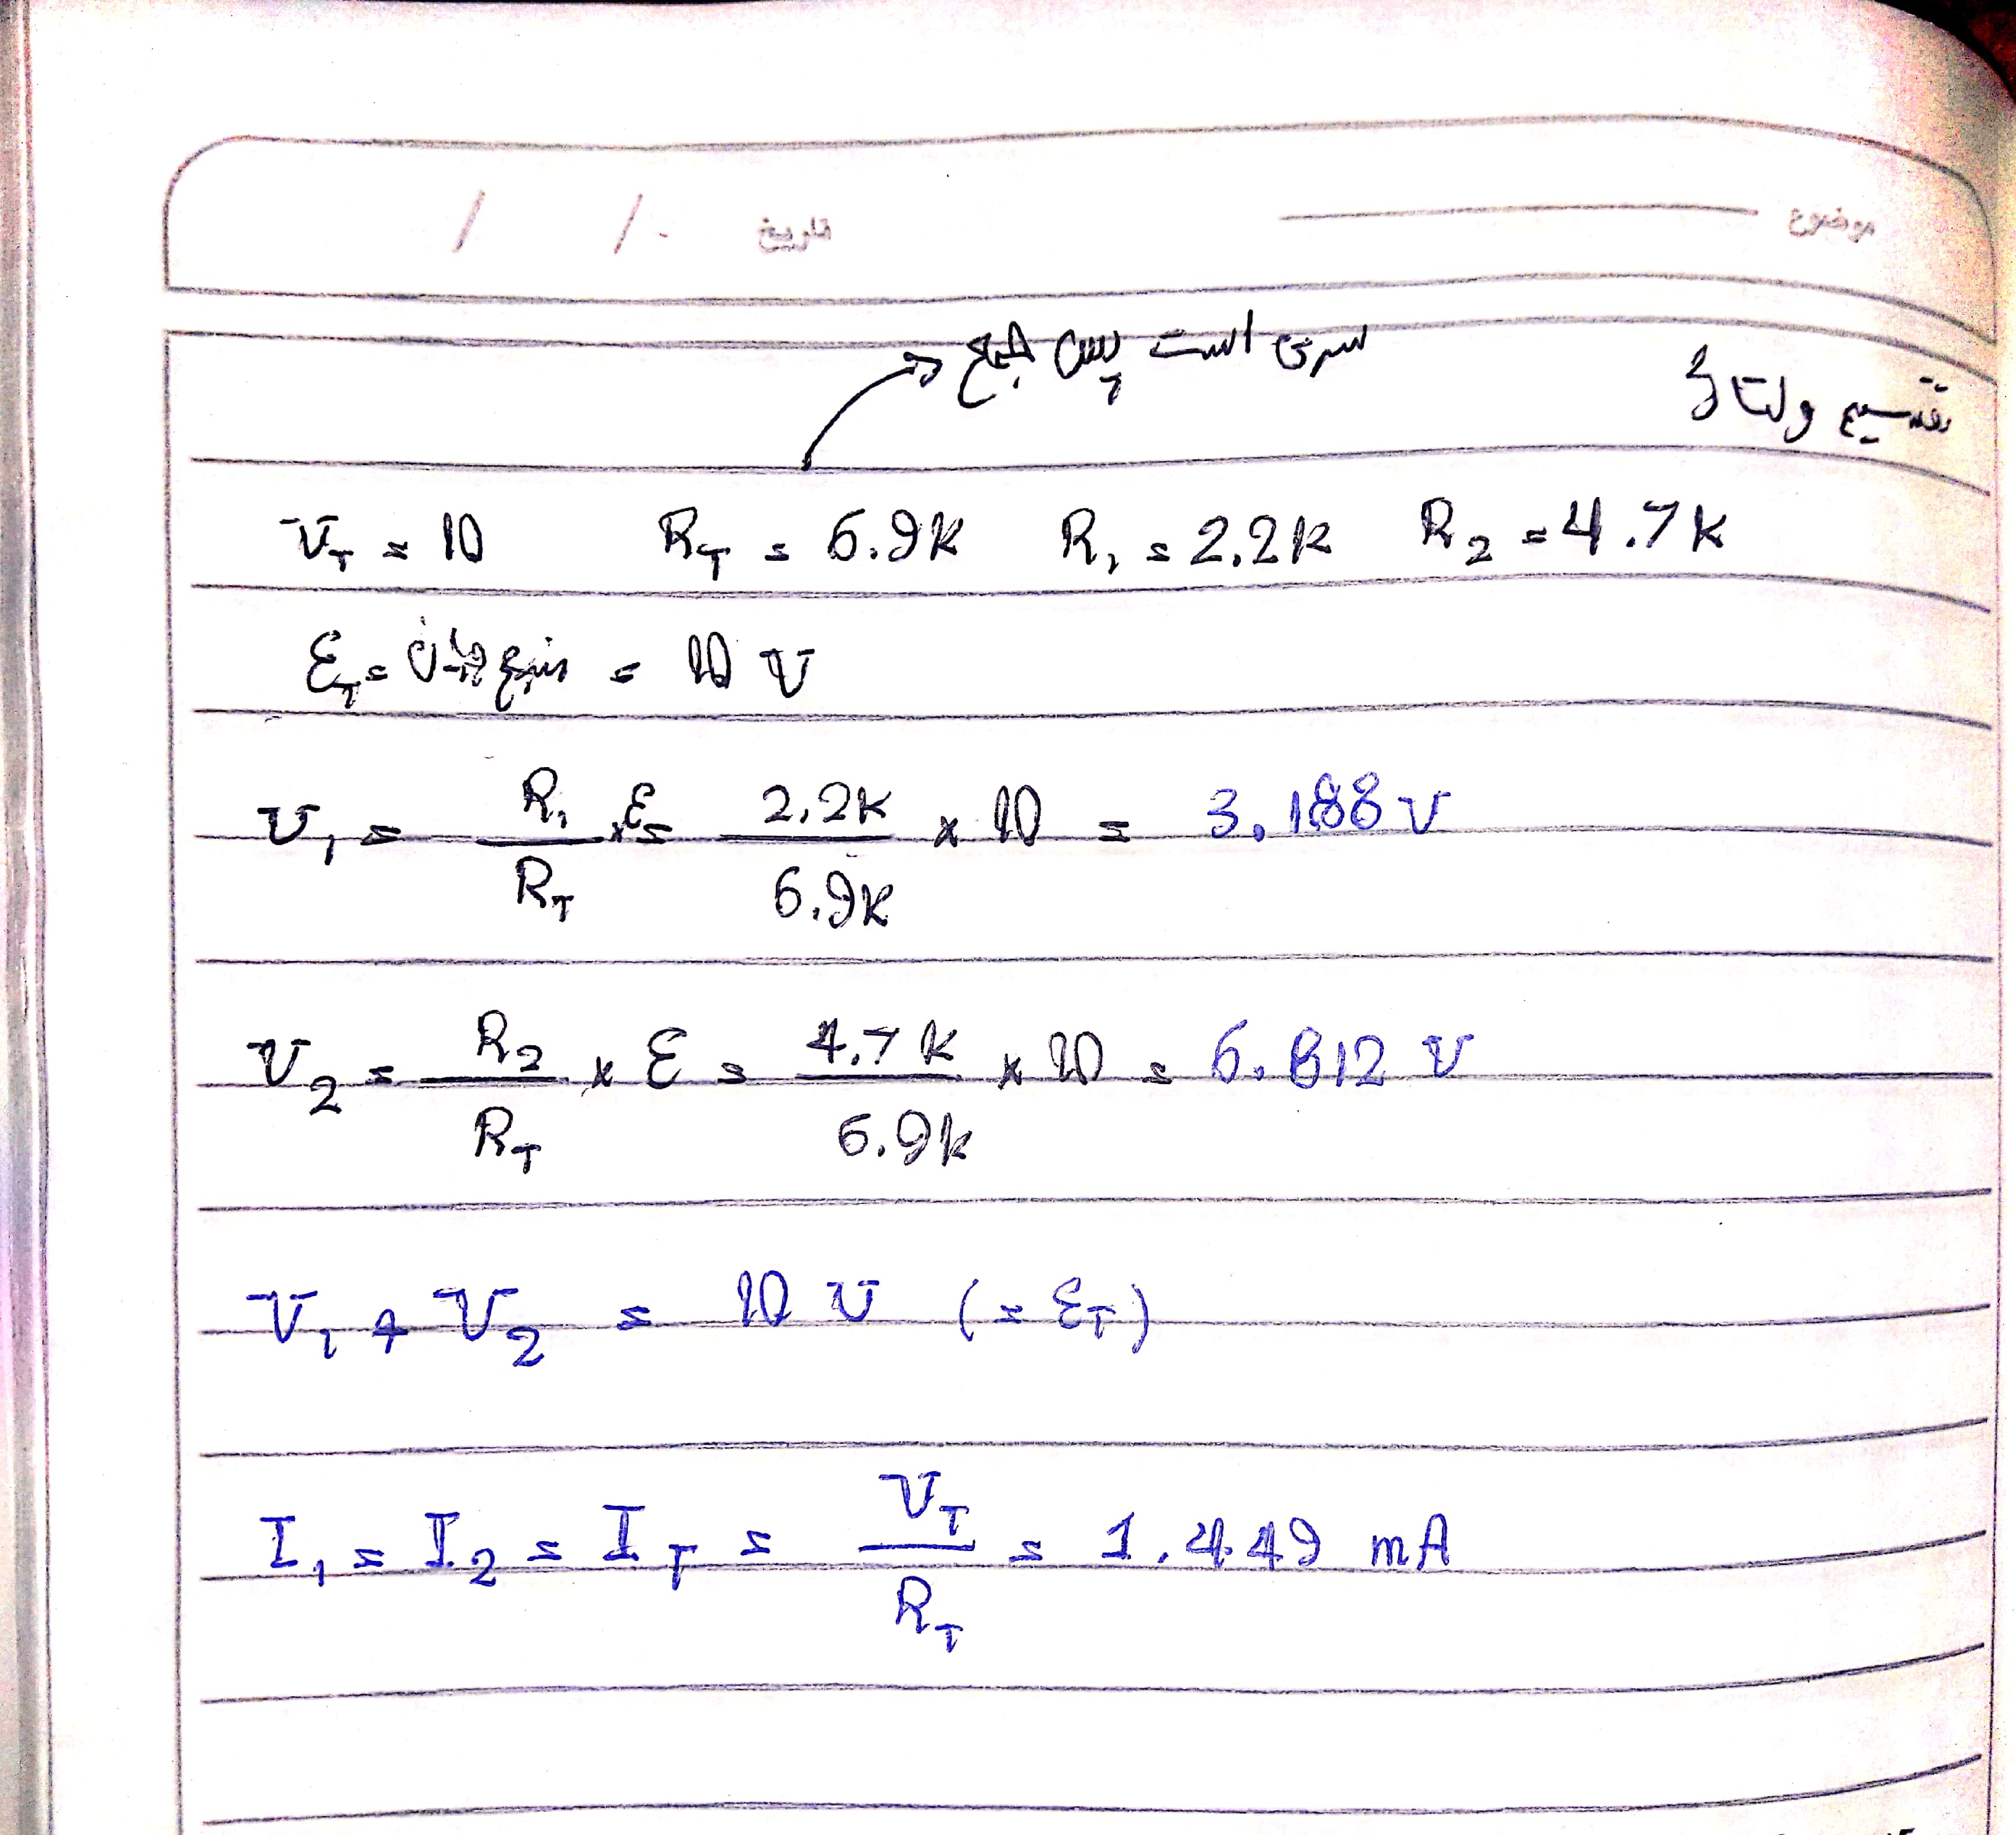 موضوع تاریخ / /
تقسیم ولتاژ
سری است پس جمع
V_T = 10 R_T = 6.9K R_1 = 2.2K R_2 = 4.7K
Ɛ_T = منبع = 10 V
V_1 = R_1/R_T × Ɛ = 2.2K/6.9K × 10 = 3.188 V
V_2 = R_2/R_T × Ɛ = 4.7K/6.9K × 10 = 6.812 V
V_1 + V_2 = 10 V (= Ɛ_T)
I_1 = I_2 = I_T = V_T/R_T = 1.449 mA